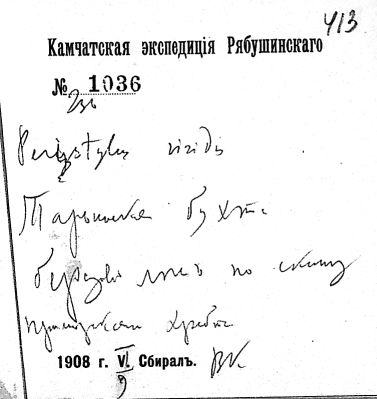 413
Камчатская экспедиція Рябушинскаго
№ 1036
Peristylus viridis
Тарьинская бухта
лугъ по склону
хребта
1908 г. VI Сбиралъ. ВК.
9